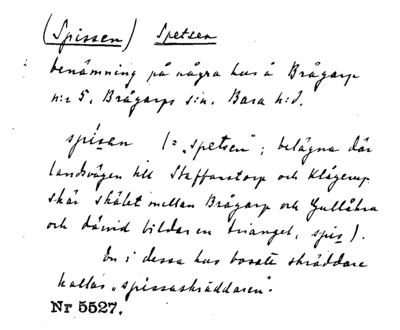 (Spissen) Spetsen
benämning på några hus å Brågarp
n:r 5. Brågarps s:n. Bara h:d.
spisen (= "spetsen"; belägna där
landsvägen till Staffanstorp och Klågerup
skär skälet mellan Brågarp och Gullåkra
och därvid bildar en triangel, spis).
En i dessa hus bosatt skräddare
kallas "spissaskräddaren".
Nr 5527.